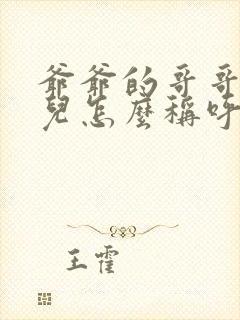 爺爺的哥哥
兒怎麼稱呼
王霍